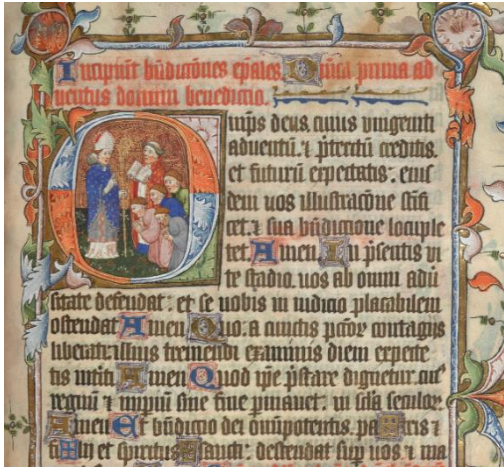 Incipiūt bn̄dictōnes ep̄ales Dn̄ica prima ad
uentus domini benedictio.
Omp̄s deus, cuius vnigeniti
aduentū ⁊ p̄teritū creditis.
et futurū expectatis: eius
dem uos illustracōne scīfi
cet. ⁊ sua bn̄dictione locuple
tet Amen In p̄sentis vi
te stadio. uos ab omni adū
sitate defendat: et se uobis in iudicio placabilem
ostendat Amen Quo. a cunctis pctōꝝ contagijs
liberati: illius tremendi examinis diem expecte
tis Amen Quod ip̄e p̄stare dignetur. cuiꝰ
regnū ⁊ imp̄iū sine fine p̄manet. in scl̄a seculoꝝ
Amen Et bn̄dictio dei omnipotentis. patris ⁊
et spiritus sancti. descendat sup̄ uos ⁊ ma